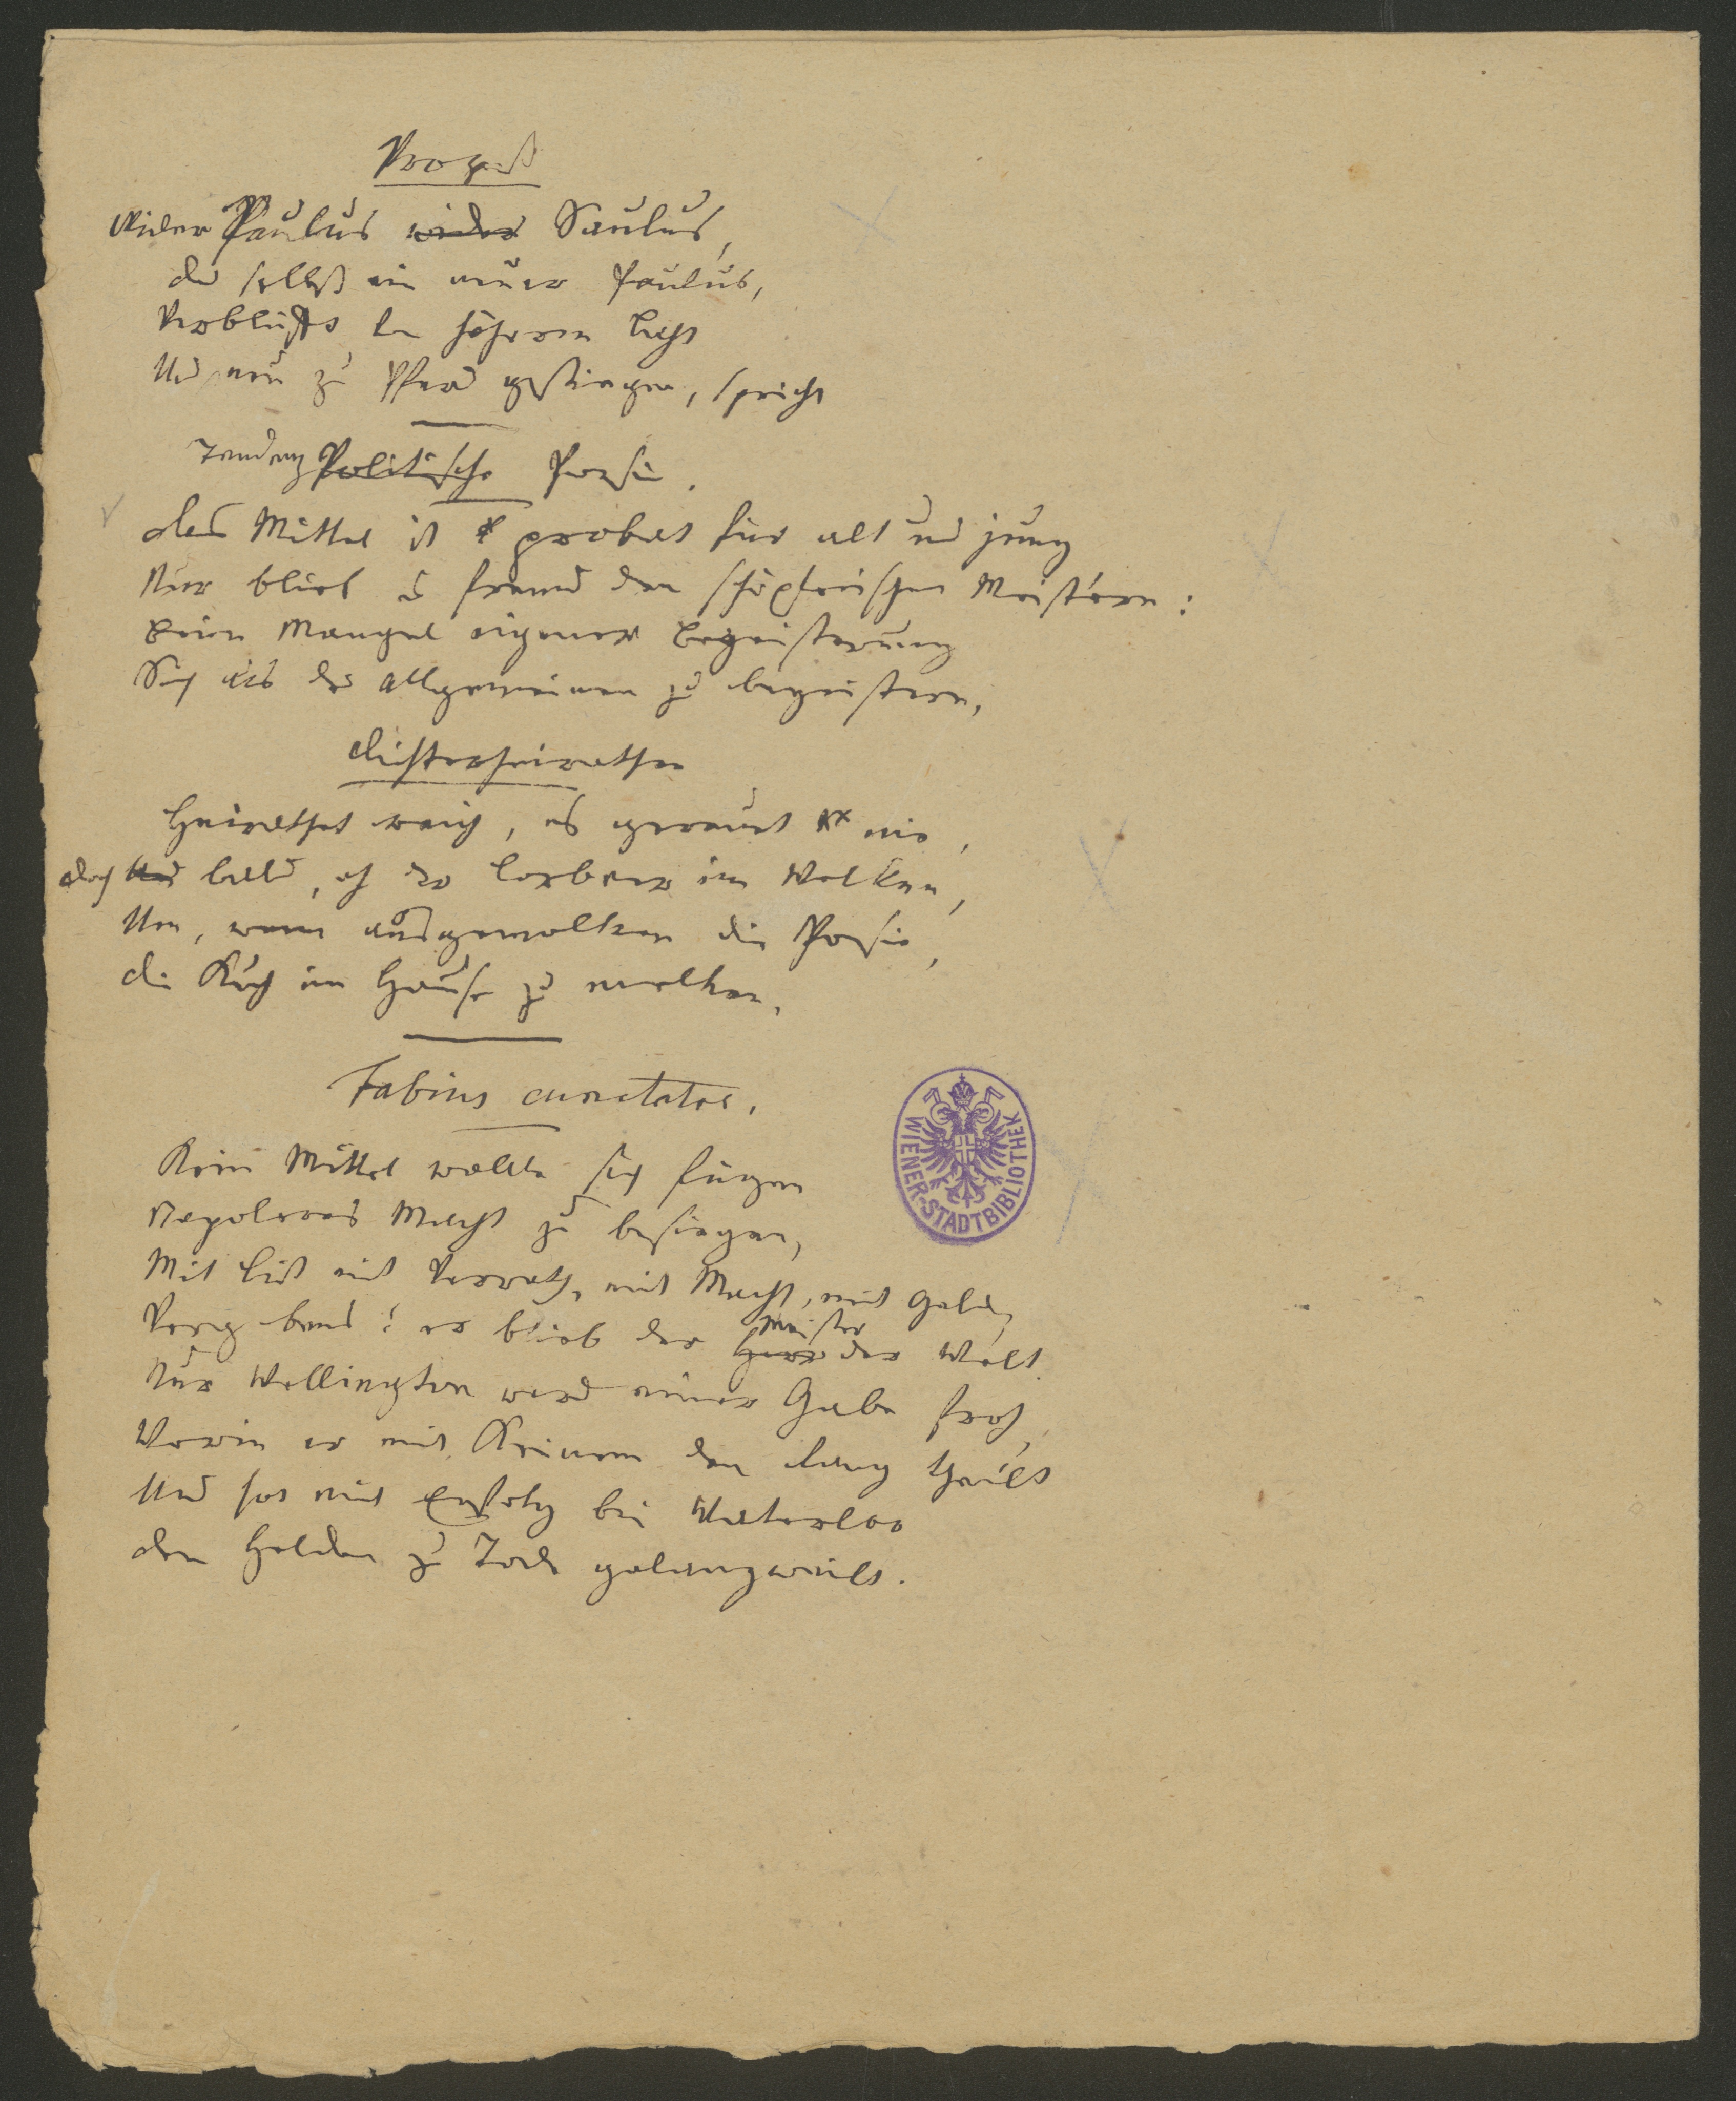 Prozeß
Wider Paulus wider Saulus,
der selbst ein neuer Paulus,
Verblüfft den höhren Licht
Und nun zu Pferd gestiegen, spricht
Tendenz Politische Poesie.
Das Mittel ist probat für alt und jung
Nur blieb es fremd den schöpferischen Meistern:
Beim Mangel eigener Begeisterung
Sich als der allgemeinen zu begeistern,
Dichterheirathen
Heirathet reich, es gereut nie,
doch Und bald, eh der Lorbeer im Welken,
Um, wenn ausgemolken die Poesie,
die Kuh im Hause zu melken.
Fabius cunctator.
Kein Mittel wollte sich fügen
Napoleons Macht zu besiegen,
Mit List mit Verrath, mit Macht, mit Geld,
Meister
Vergebens! er blieb der Herr der Welt.
Nur Wellington ward einer Gabe froh,
Worin er mit Keinem den Rang theilt
Und hat mit Erfolg bei Waterloo
den Helden zu Tode gelangweilt.
WIENER-STADTBIBLIOTHEK